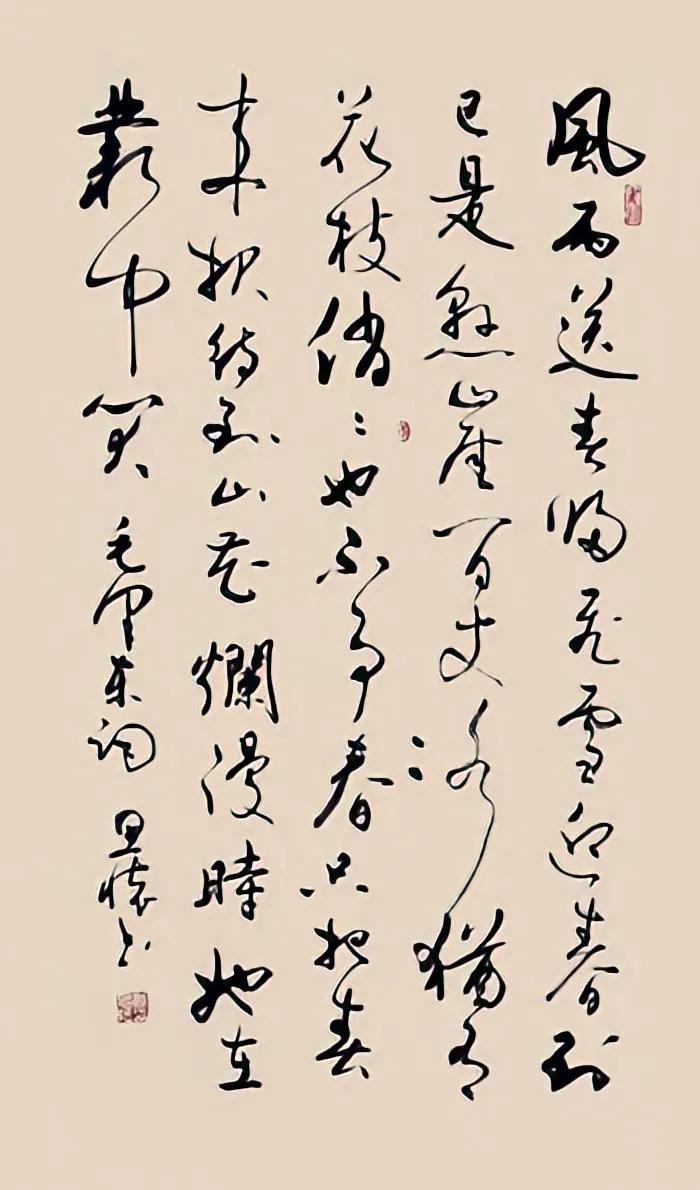 風雨送春歸飛雪迎春到
已是懸崖百丈冰猶有
花枝俏〻也不爭春只把春
來報待到山花爛漫時她在
叢中笑 毛澤东詞 懷书